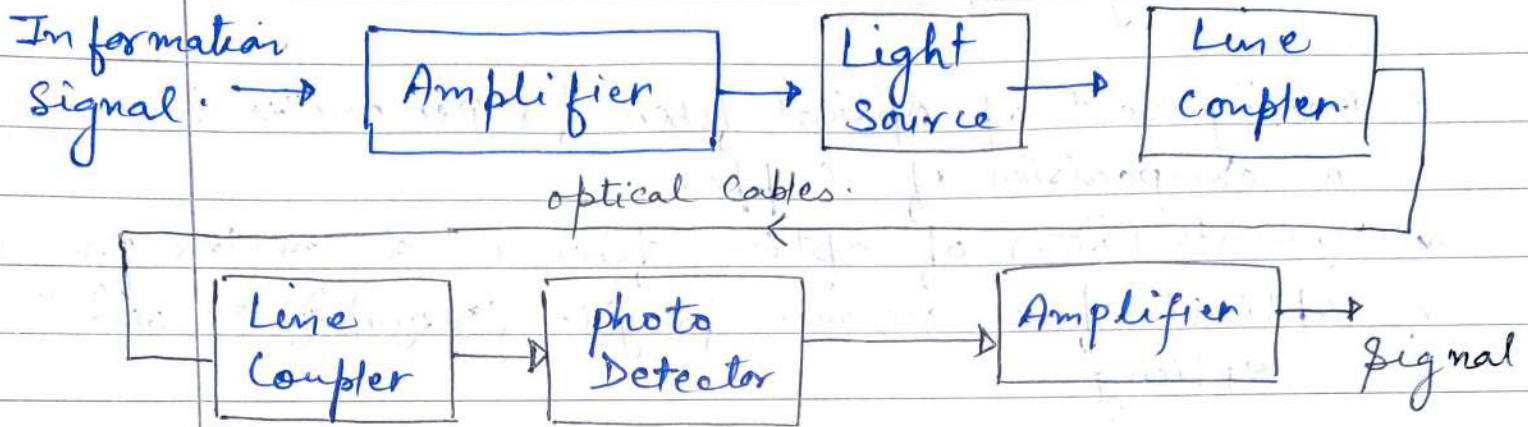 Information
Signal.
Amplifier
Light
Source
Line
Coupler
optical Cables.
Line
Coupler
photo
Detector
Amplifier
Signal